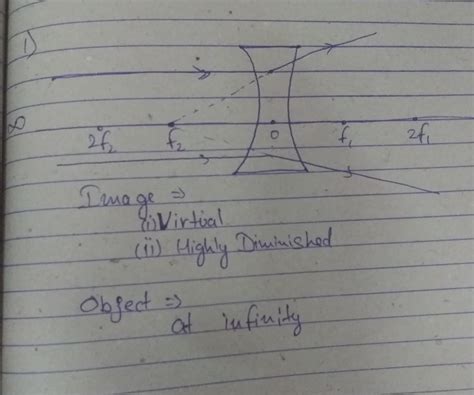 1)
∞ 2f₂ f₂ O f₁ 2f₁
Image ⇒
(i) Virtual
(ii) Highly Diminished
Object ⇒
at infinity